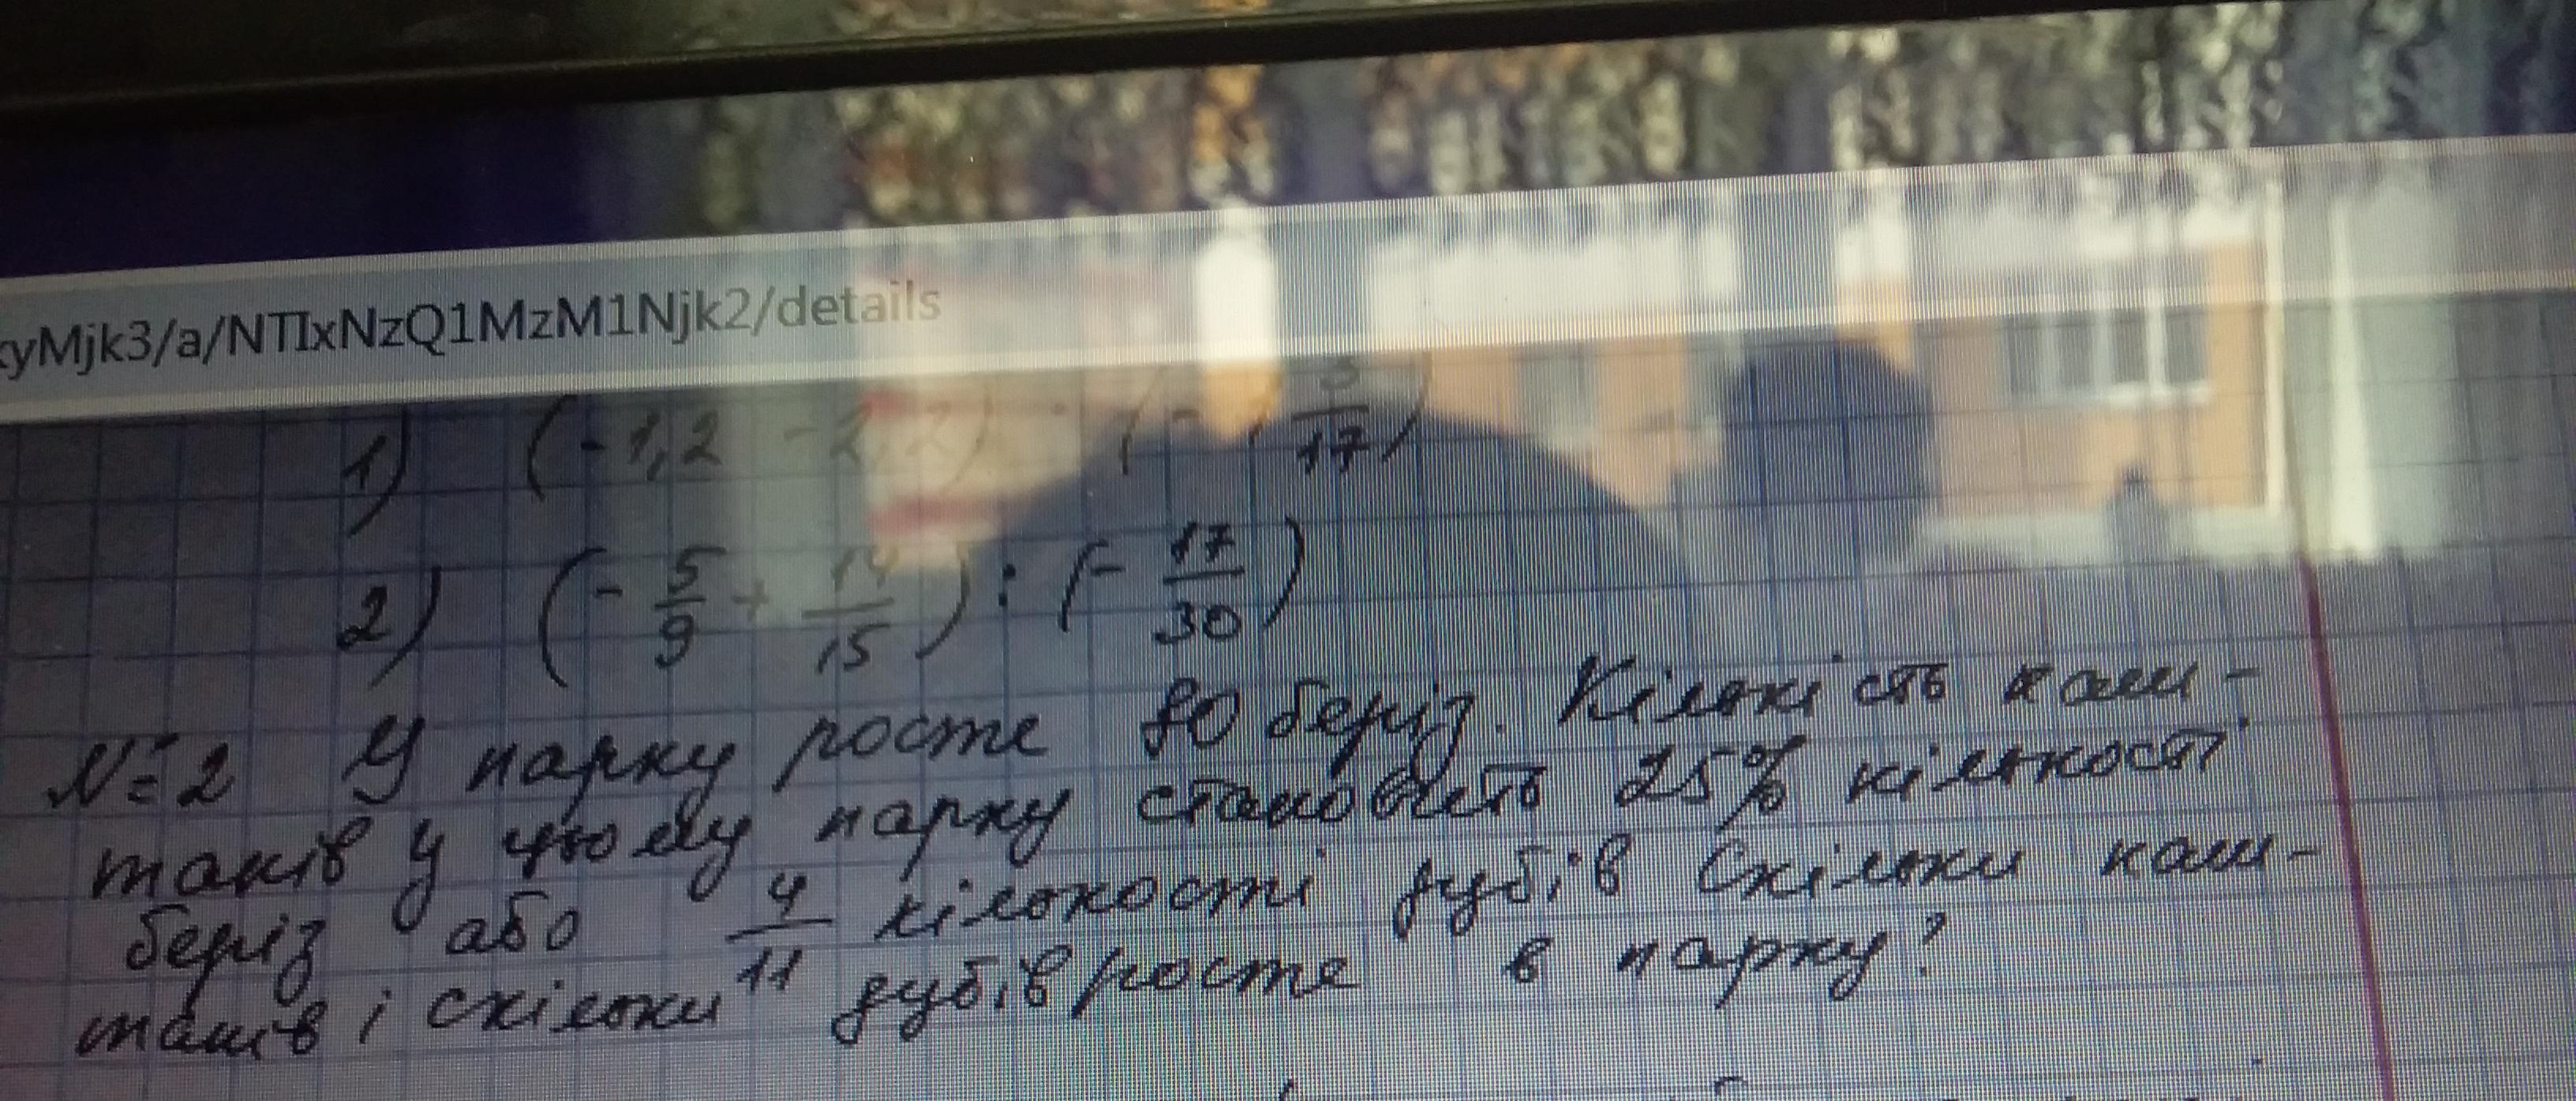 yMjk3/a/NTIxNzQ1MzM1Njk2/details
1) (-1,2 -2,2) · (- 3/17)
2) (- 5/9 + 14/15) : (- 17/30)
№2 У парку росте 80 беріз. Кількість каш-
танів у цьому парку становить 25% кількості
беріз або 4/11 кількості дубів Скільки каш-
танів і скільки дубів росте в парку?